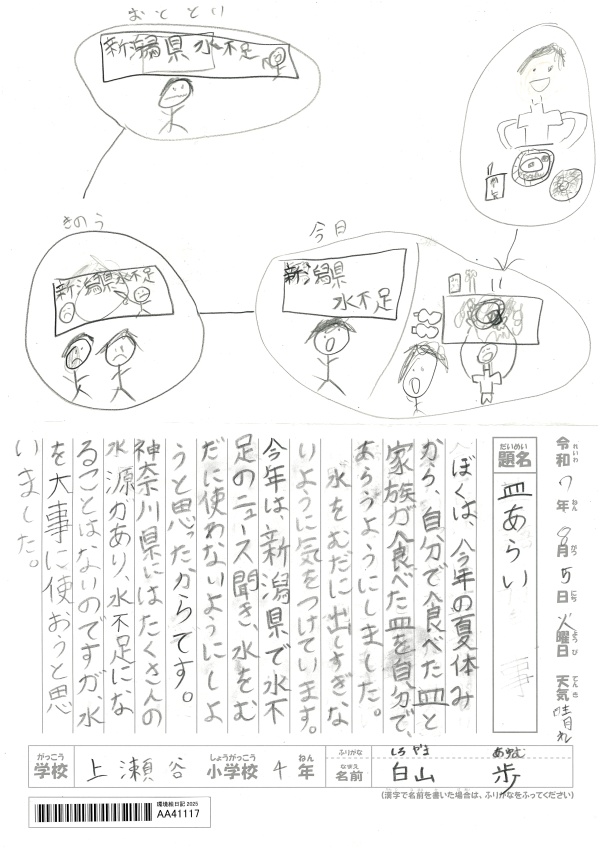 おととい
新潟県 水不足
きのう
新潟県水不足
今日
新潟県
水不足
令和7年8月5日火曜日 天気 晴れ
れいわ ねん がつ にち ようび てんき
だいめい
題名
皿あらい
ぼくは、今年の夏休み
から、自分で食べた皿と
家族が食べた皿を自分で、
あらうようにしました。
水をむだに出しすぎな
いように気をつけています。
今年は新潟県で水不
足のニュース聞き、水をむ
だに使わないようにしよ
うと思ったからてす。
神奈川県にはたくさんの
水源があり、水不足にな
ることはないのですが、水
を大事に使おうと思
いました。
がっこう しょうがっこう ねん
学校 上瀬谷 小学校 4年
ふりがな しろやま あゆむ
なまえ
名前 白山 歩
(漢字で名前を書いた場合は、ふりがなをふってください)
環境絵日記 2025
AA41117